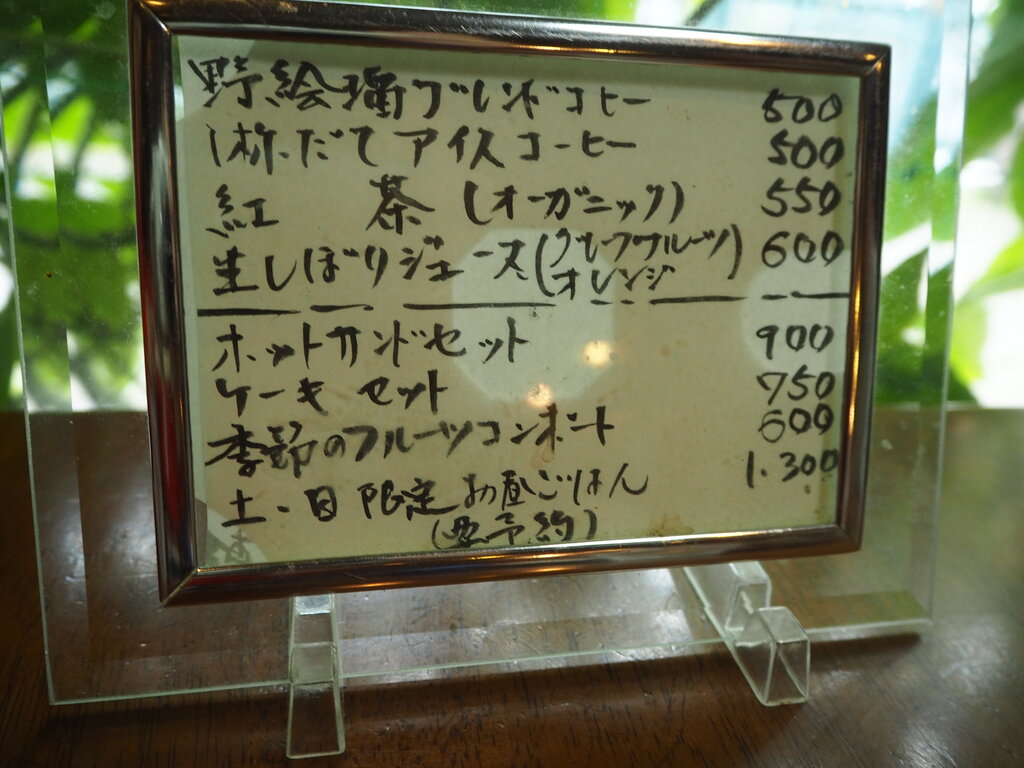 野絵瑠ブレンドコーヒー 500
一杯だてアイスコーヒー 500
紅 茶 (オーガニック) 550
生しぼりジュース(グレープフルーツ オレンジ) 600
ホットサンドセット 900
ケーキセット 750
季節のフルーツコンポート 600
土・日限定お昼ごはん 1.300
(要予約)